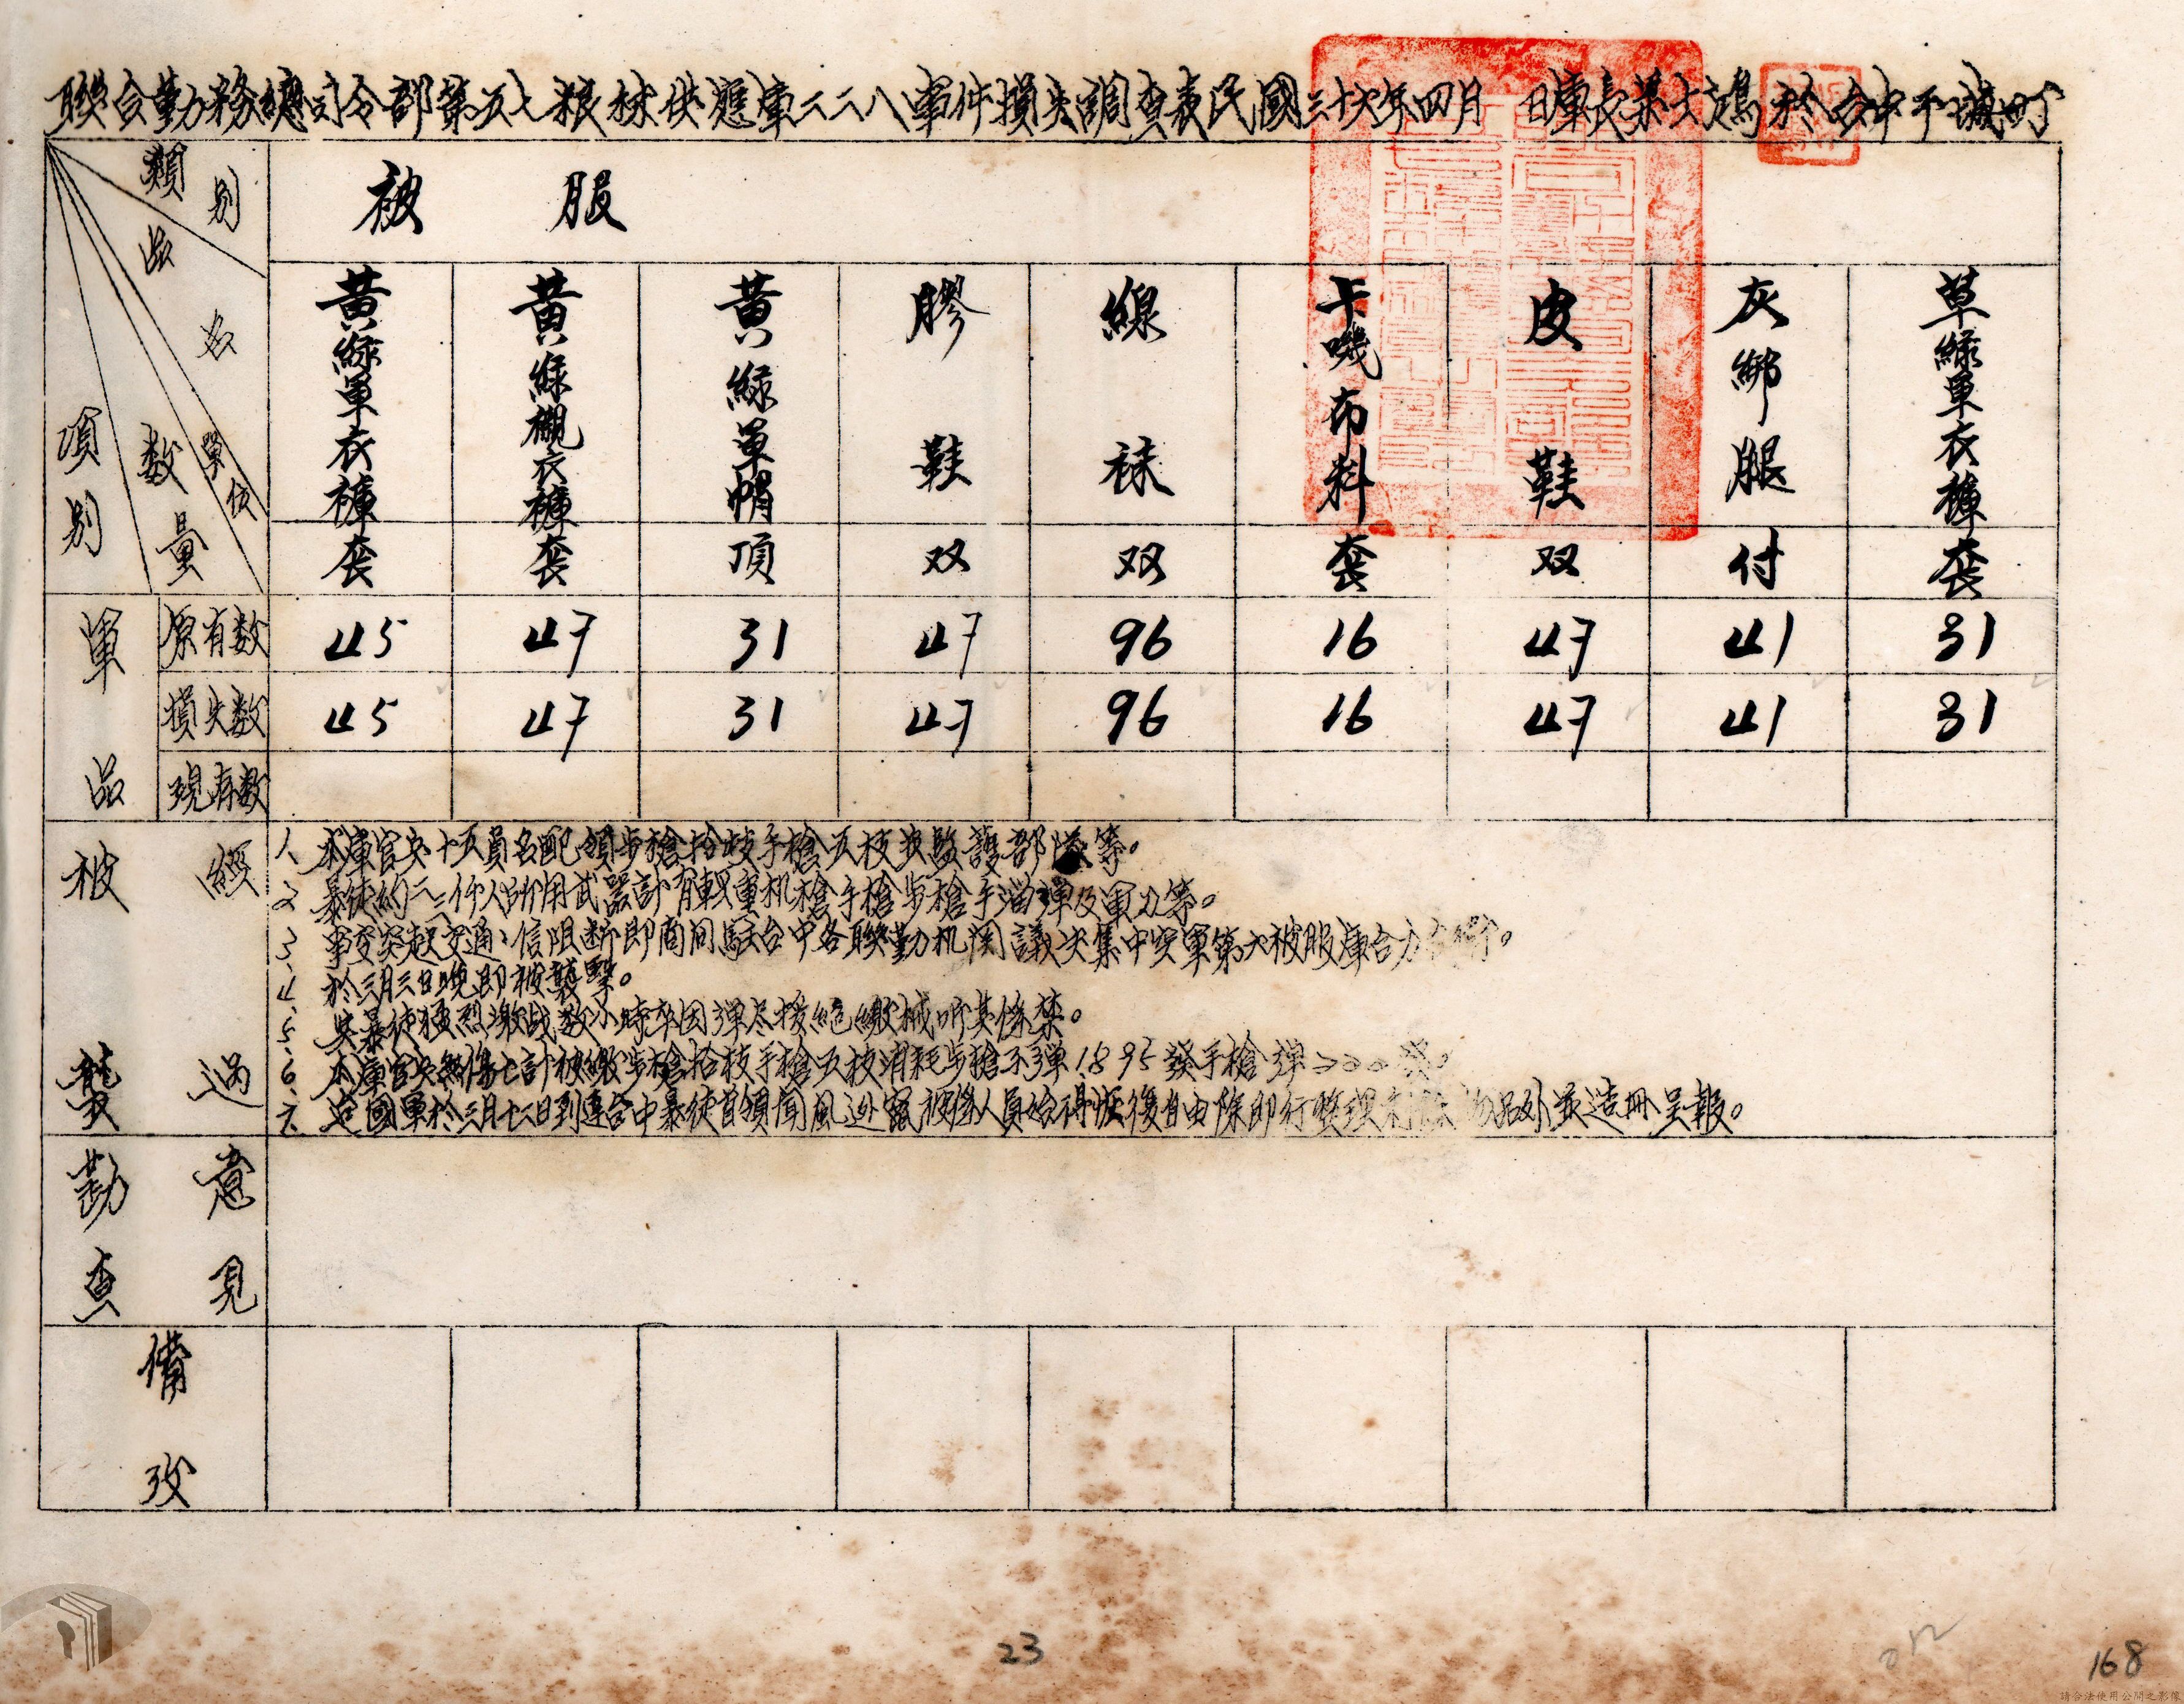 聯合勤務總司令部第五七粮秣供應庫二二八事件損失調查表民國三十六年四月 日庫長葉士鴻於台中平城町
類別 品名 單位 數量 項別
被服
黃綠軍衣褲 黃綠襯衣褲 黃綠軍帽 膠鞋 線袜 卡嘰布料 皮鞋 灰綁腿 草綠軍衣褲
套 套 頂 双 双 套 双 付 套
軍品
原有数 45 47 31 47 96 16 47 41 31
損失数 45 47 31 47 96 16 47 41 31
現存数
被襲經過
1、本庫官兵十五員名配領步槍拾枝手槍五枝並無警護部隊等。
2、暴徒約二、三仟人所用武器計有輕重机槍手槍步槍手溜彈及軍刀等。
3、事变突起交通、信阻断即商同駐台中各聯勤机関議决集中空軍第六被服庫合力
4、於三月三日晚即被襲擊。
5、與暴徒猛烈激战数小時卒因彈尽援絕繳械听其係禁。
6、本庫官兵無傷亡計被繳步槍拾枝手槍五枝消耗步槍子彈1895發手槍彈200發。
7、迨國軍於三月十三日到達台中暴徒首領聞風逃竄被係人員始得恢復自由除即行整理 物品外並造冊呈報。
勘查意見
備攷
23
168
請合法使用公開之影像